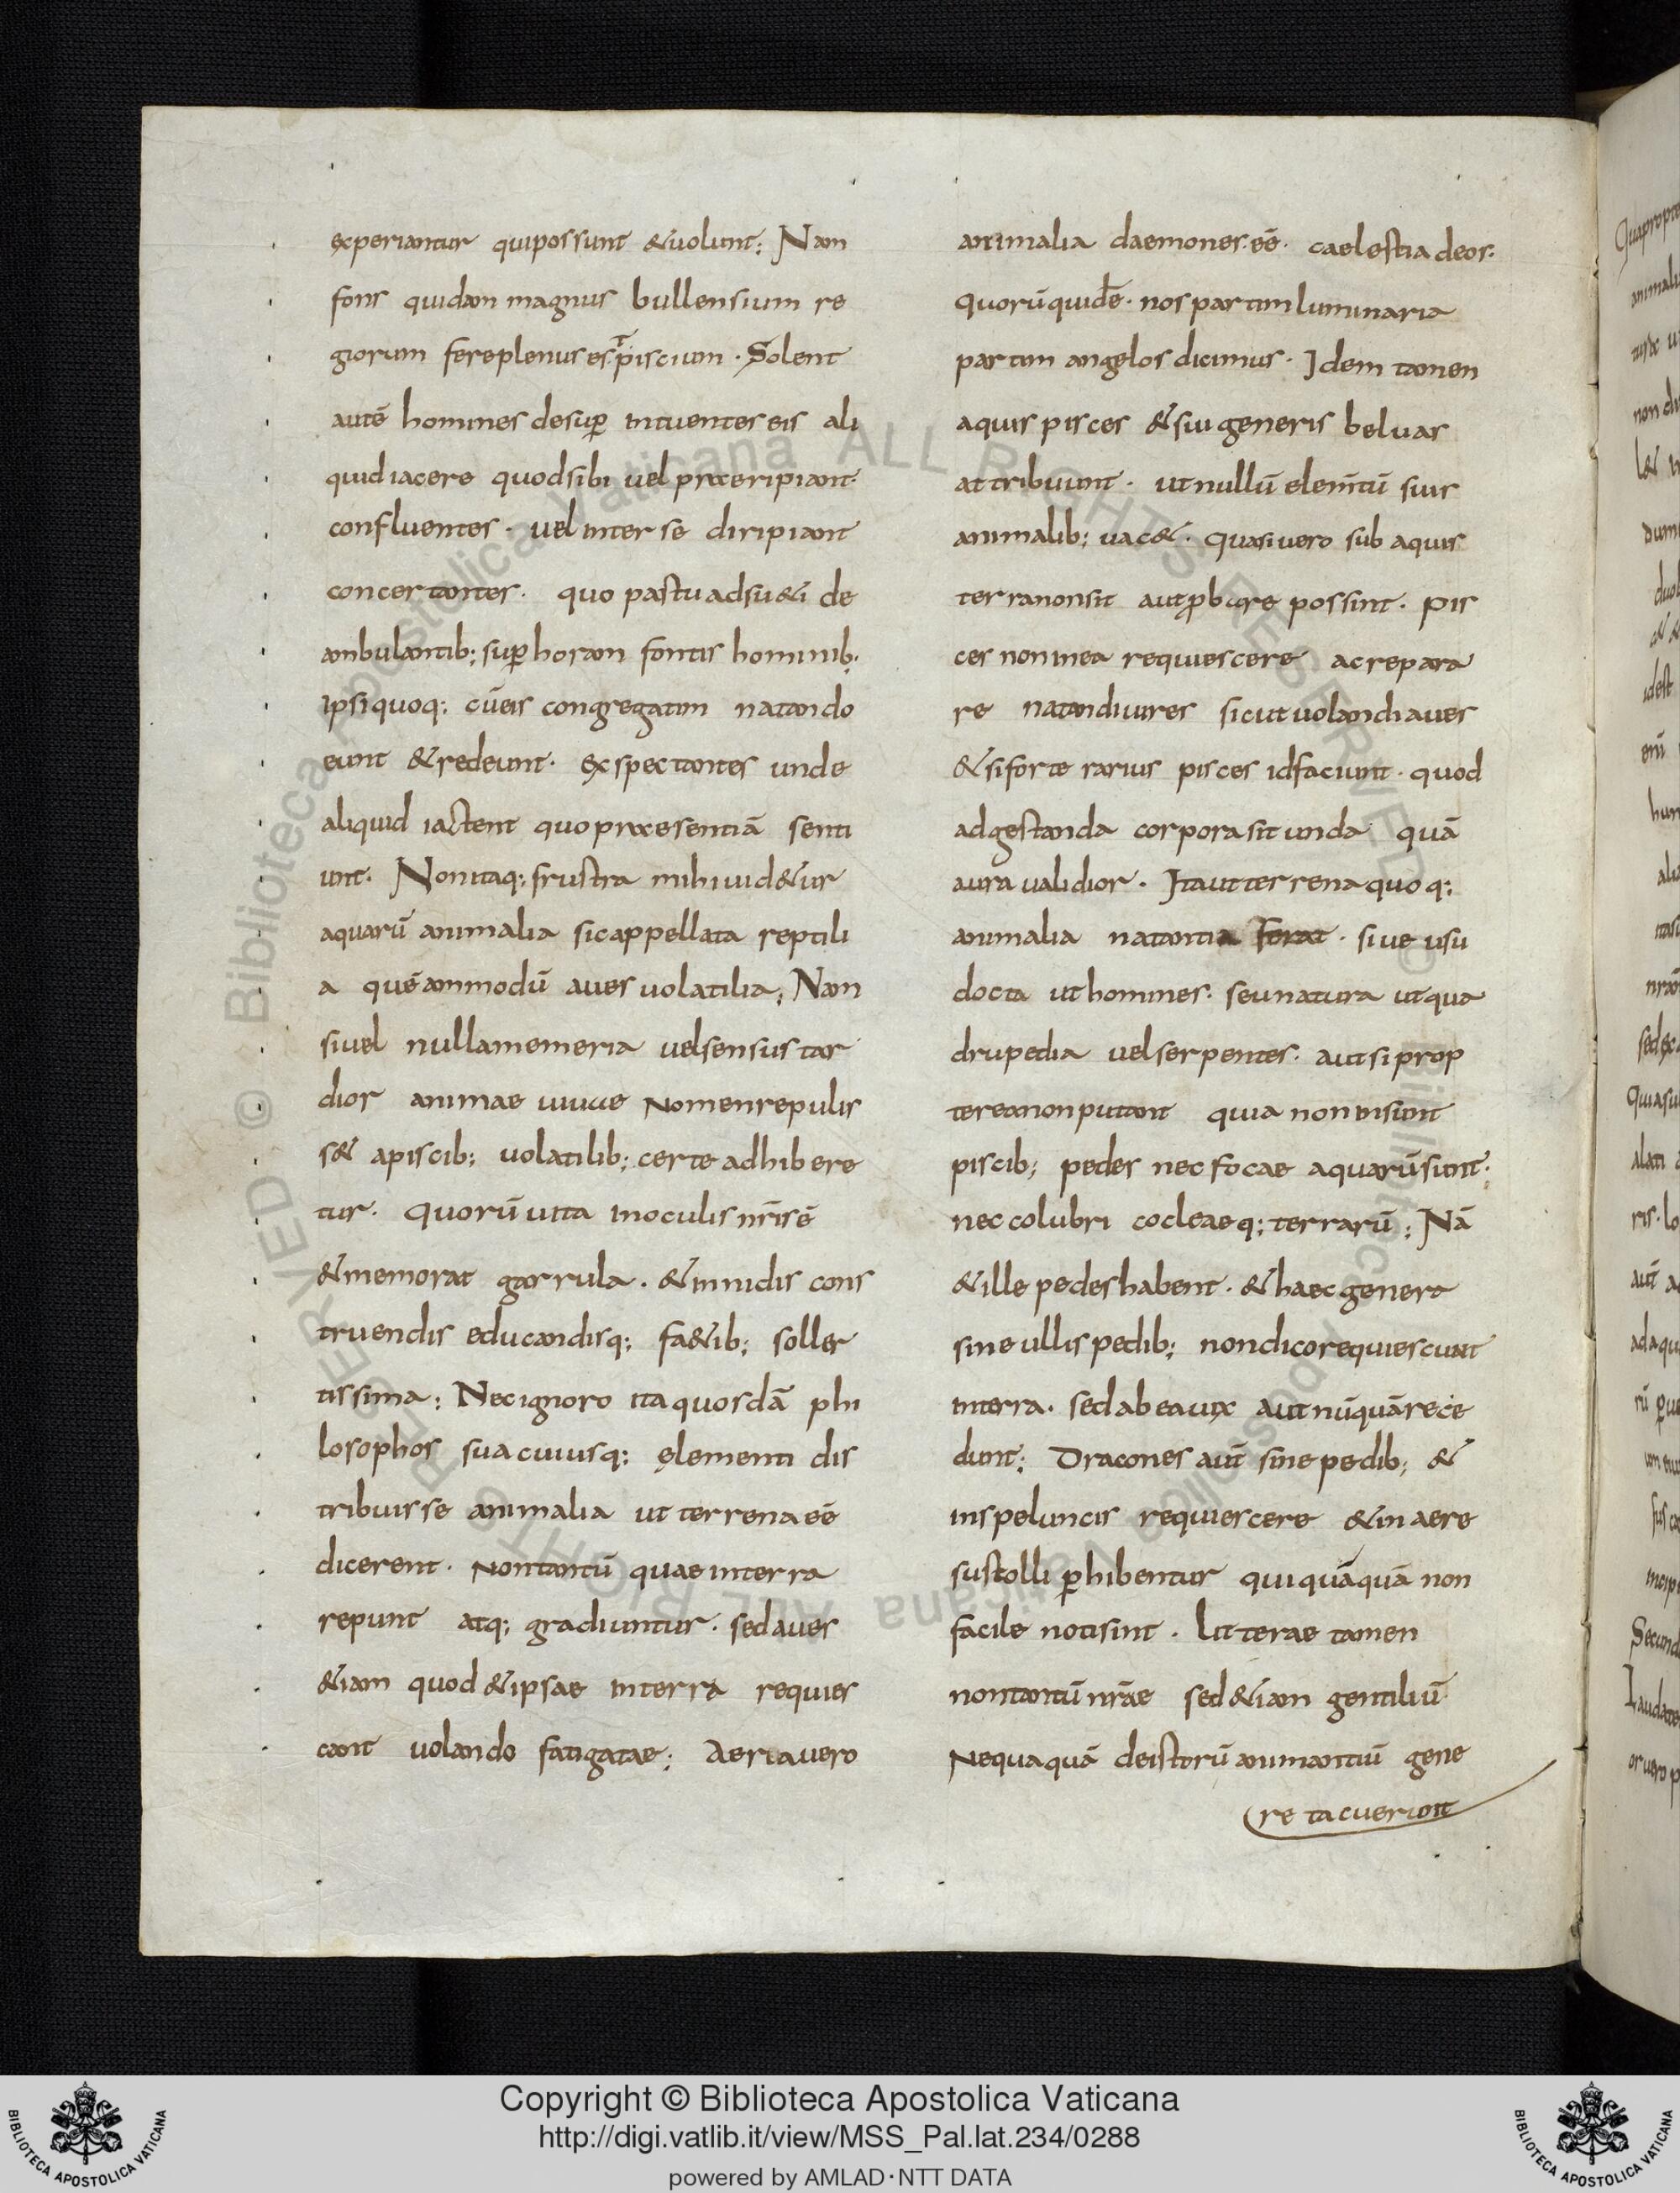 experiantur quipossunt &uolunt; Nam
fons quidam magnus bullensium re
giorum fereplenus es piscium · Solent
autē homines desup̄ intuentes eis ali
quid iacere quodsibi uel praeeripiant·
confluentes · uel inter se diripiant
concertantes · quo pastu adsu&i de
anbulantib; sup̄ horam fontis hominib;
ipsi quoq; cū eis congregatim natando
eunt & redeunt · exspectantes unde
aliquid iactent quo praesentiā senti
unt · Non itaq; frustra mihi uid&ur
aquarū animalia sic appellata reptili
a quēammodū aues uolatilia; Nam
si uel nulla memeria uel sensus tar
dior animae uiuae Nomen repulis
s& a piscib; uolatilib; certe adhibere
tur · Quorū uita in oculis nr̄is ē
& memorat garrula · & in nidis cons
truendis educandisq; fa&ib; soller
tissima; Nec ignoro ita quosdā phi
losophos sua cuiusq; ęlementi dis
tribuisse animalia ut terrena eē
dicerent · Non tantū quae in terra
repunt atq; gradiuntur · sed aues
&iam quod & ipsae in terra requies
cant uolando fatigatae; Aeria uero
animalia daemones eē · caelestia deos·
quorū quidē · nos partim luminaria
partim angelos dicimus · Idem tamen
aquis pisces & sui generis beluas
attribuunt · ut nullū elem̄tū suis
animalib; uac& · quasi uero sub aquis
terra non sit aut p̄bare possint · pis
ces non in ea requiescere ac repara
re natandi uires sicut uolandi aues
& si forte rarius pisces id faciunt · quod
ad gestanda corpora sit unda quā
aura ualidior · Ita ut terrena quoq;
animalia natantia ferat · siue usu
docta ut homines · seu natura ut qua
drupedia uel serpentes · aut si prop
terea non putant quia non insunt
piscib; pedes nec focae aquarū sunt·
nec colubri cocleaeq; terrarū; Nā
& ille pedes habent · & haec genera
sine ullis pedib; non dico requiescunt
in terra · sed ab ea uix aut nūquā rece
dunt; Dracones aūt sine pedib; &
in speluncis requiescere & in aere
sustolli p̄hibentur qui quāquā non
facile noti sint · Litterae tamen
non tantū nr̄ae sed &iam gentiliū
Nequaquā de istorū animantiū gene
re tacuerunt
Copyright © Biblioteca Apostolica Vaticana
http://digi.vatlib.it/view/MSS_Pal.lat.234/0288
powered by AMLAD·NTT DATA